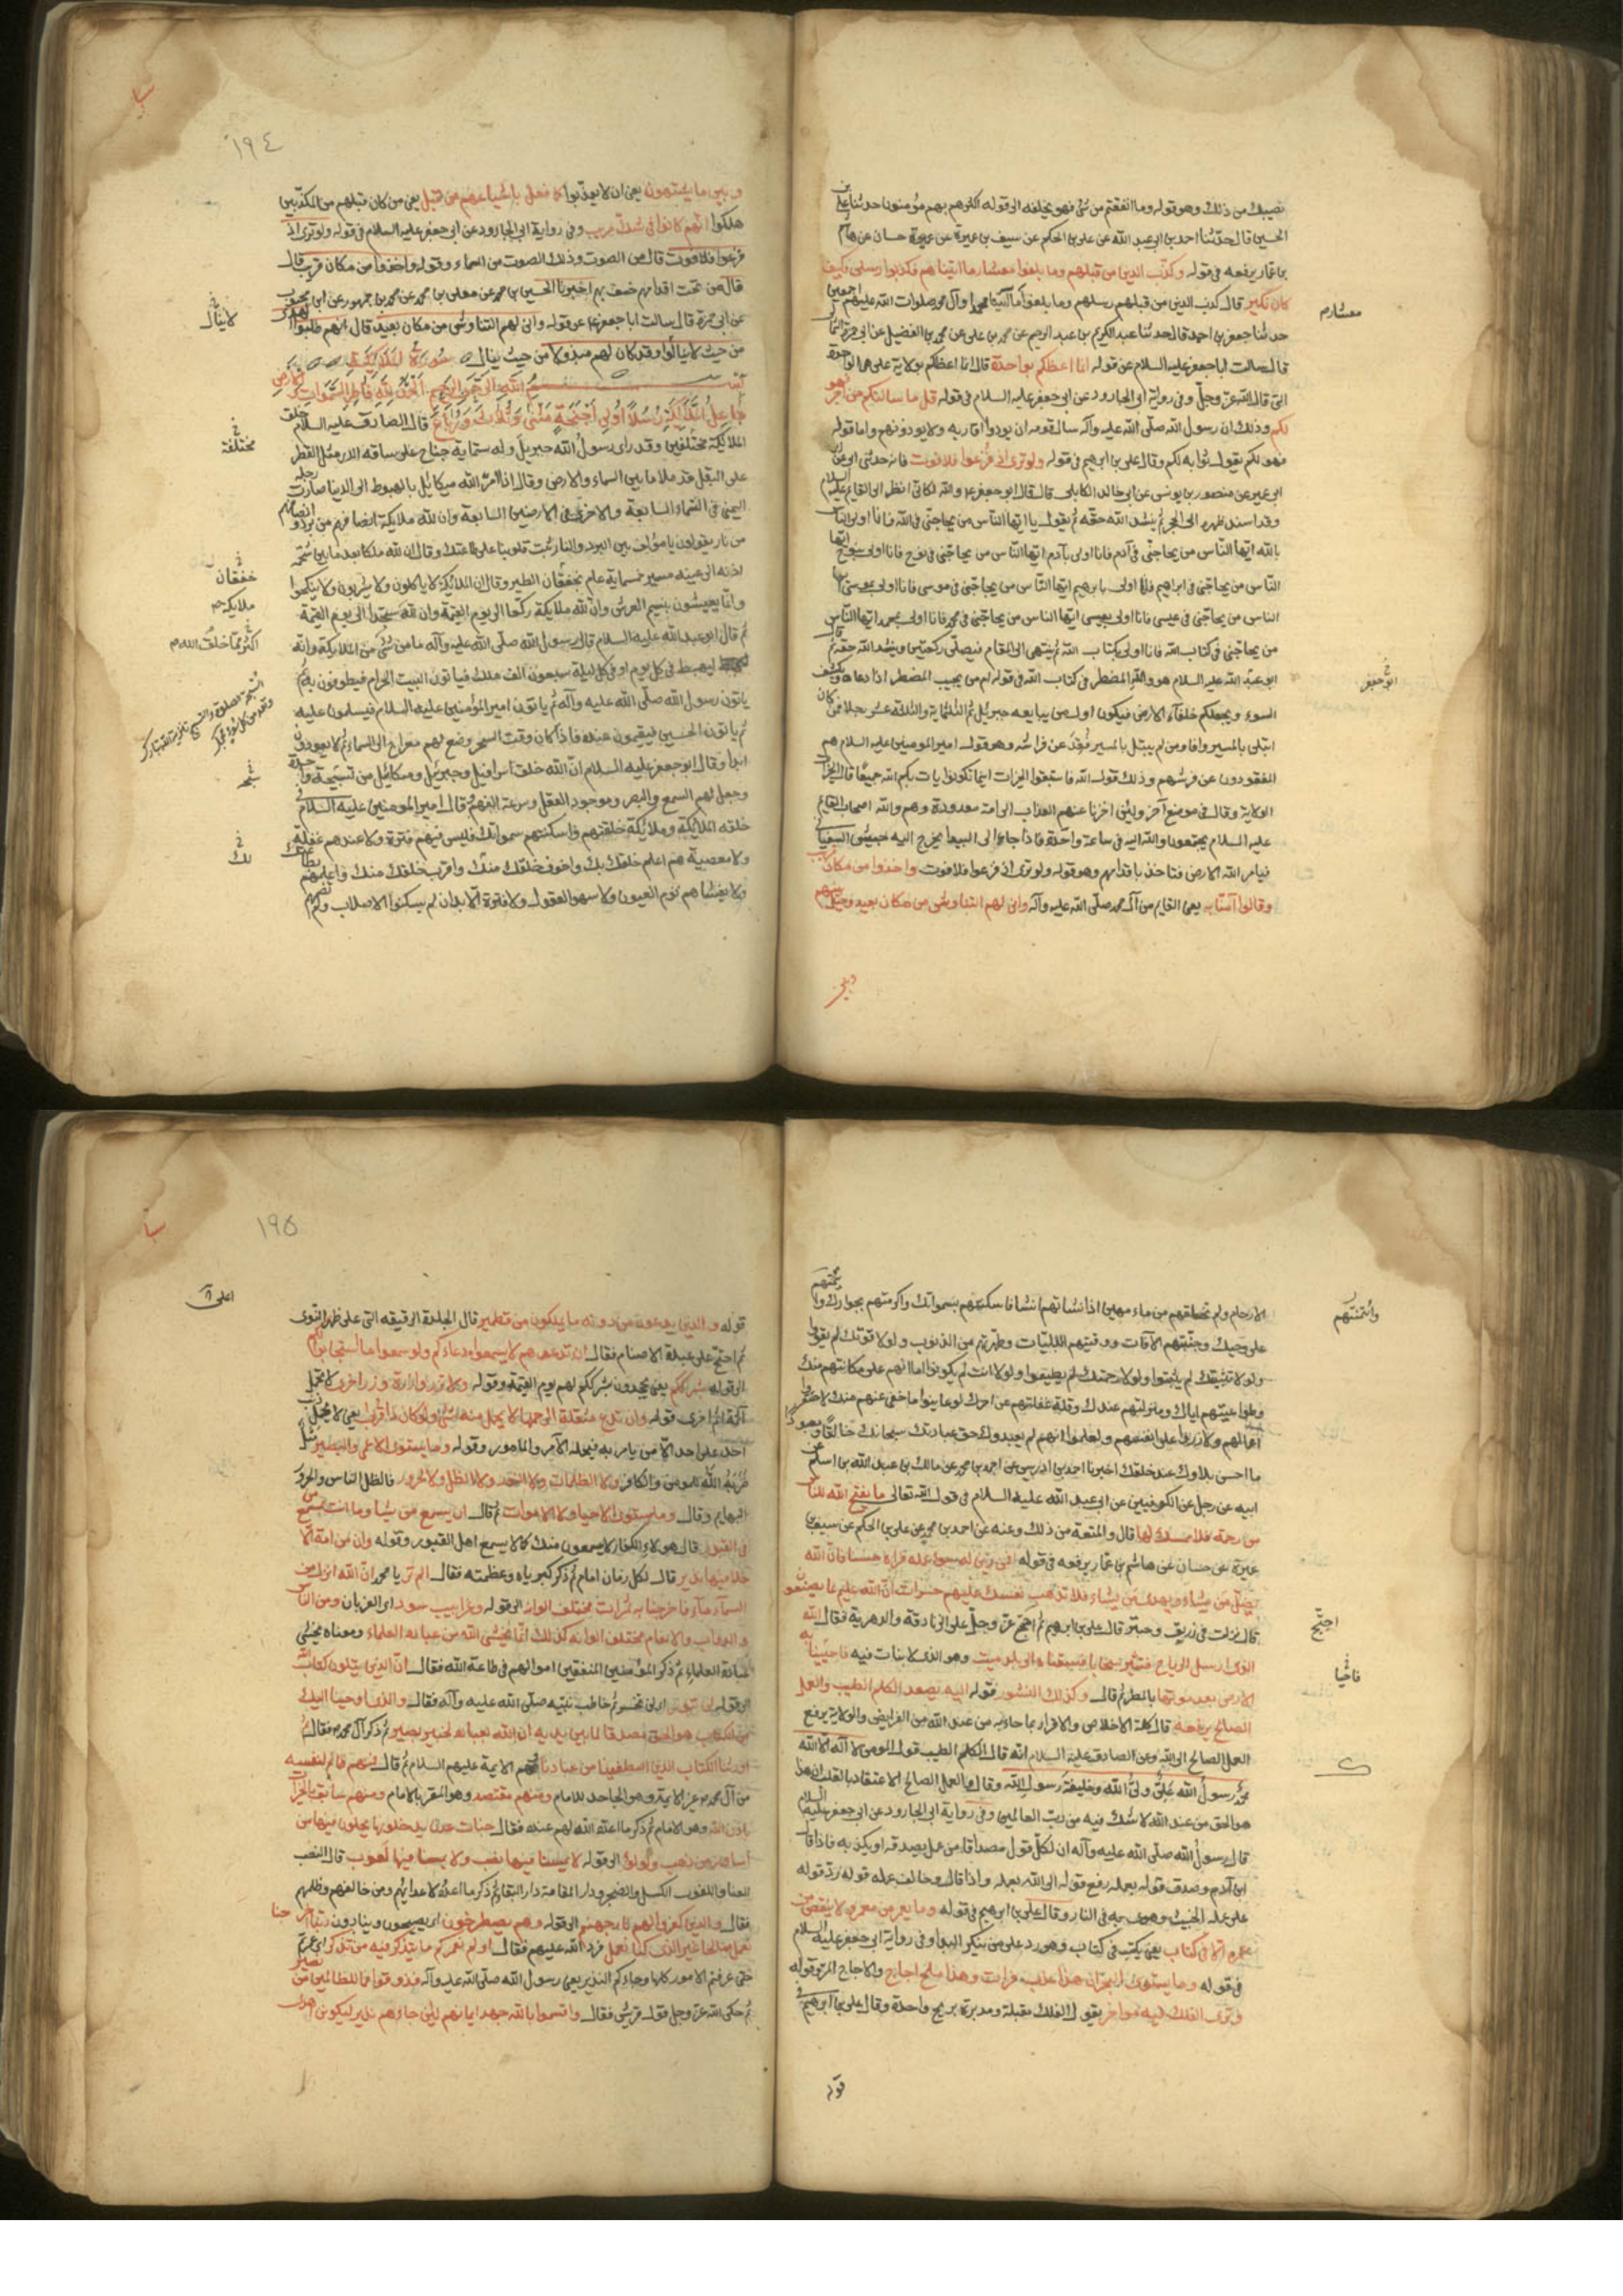 نصيبك من ذلك وهو قوله وما انفقتم من شئ فهو يخلفه الى قوله اكثرهم بهم مؤمنون حدثنا علي بن
الحسين قال حدثنا احمد بن ابي عبد الله عن علي بن الحكم عن سيف بن عميرة عن حسان عن هاشم
بن عمار يرفعه في قوله وكذب الذين من قبلهم وما بلغوا معشار ما اتيناهم فكذبوا رسلي فكيف
كان نكير قال كذب الذين من قبلهم رسلهم وما بلغوا ما آتينا محمدا وآل محمد صلوات الله عليهم اجمعين
معشارهم
حدثنا جعفر بن احمد قال حدثنا عبد الكريم بن عبد الرحيم عن محمد بن علي عن محمد بن الفضيل عن ابي حمزة الثمالي
قال سالت ابا جعفر عليه السلام عن قوله انما اعظكم بواحدة قال انما اعظكم بولاية علي هي الواحدة
التي قال الله عز وجل وفي رواية ابي الجارود عن ابي جعفر عليه السلام في قوله قل ما سالتكم من اجر فهو
لكم وذلك ان رسول الله صلى الله عليه وآله سال قومه ان يودوا اقاربه ولا يودونهم واما قوله
فهو لكم يقول ثوابه لكم وقال علي بن ابراهيم في قوله ولو ترى اذ فزعوا فلا فوت فانه حدثني ابي عن
ابن ابي عمير عن منصور بن يونس عن ابي خالد الكابلي قال قال ابو جعفر والله لكاني انظر الى القايم عليه السلام
وقد اسند ظهره الى الحجر ثم ينشد الله حقه ثم يقول يا ايها الناس من يحاجني في الله فانا اولى الناس
بالله ايها الناس من يحاجني في آدم فانا اولى بآدم ايها الناس من يحاجني في نوح فانا اولى بنوح ايها
الناس من يحاجني في ابراهيم فانا اولى بابرهيم ايها الناس من يحاجني في موسى فانا اولى بموسى ايها
الناس من يحاجني في عيسى فانا اولى بعيسى ايها الناس من يحاجني في محمد فانا اولى بمحمد ايها الناس
من يحاجني في كتاب الله فانا اولى بكتاب الله ثم ينتهي الى المقام فيصلي ركعتين وينشد الله حقه ثم قال
ابو عبد الله عليه السلام هو والله المضطر في كتاب الله في قوله امن يجيب المضطر اذا دعاه ويكشف
ابو جعفر
السوء ويجعلكم خلفآء الارض فيكون اول من يبايعه جبرئيل ثم الثلثماية والثلاثة عشر رجلا فمن كان
ابتلي بالمسير وافا ومن لم يبتل بالمسير فقد عن فراشه وهو قول امير المومنين عليه السلام هم
المفقودون عن فرشهم وذلك قول الله فاستبقوا الخيرات اينما تكونوا يات بكم الله جميعا قال الخيرات
الولاية وقال في موضع آخر ولئن اخرنا عنهم العذاب الى امة معدودة وهم والله اصحاب القايم
عليه السلام يجتمعون والله اليه في ساعة واحدة فاذا جاء الى البيداء يخرج اليه جيش السفياني
فيامر الله الارض فتاخذ باقدامهم وهو قوله ولو ترى اذ فزعوا فلا فوت واخذوا من مكان قريب
وقالوا آمنا به يعني القايم من آل محمد صلى الله عليه وآله وانى لهم التناوش من مكان بعيد وحيل بينهم
وبين
سبا
١٩٤
وبين ما يشتهون يعني ان لا يعذبوا كما فعل باشياعهم من قبل يعني من كان قبلهم من المكذبين
هلكوا انهم كانوا في شك مريب وفي رواية ابي الجارود عن ابي جعفر عليه السلام في قوله ولو ترى اذ
فزعوا فلا فوت قال من الصوت وذلك الصوت من السماء وقوله واخذوا من مكان قريب قال
قال من تحت اقدامهم خسف بهم اخبرنا الحسين بن محمد عن معلى بن محمد عن محمد بن جمهور عن ابن محبوب
عن ابي حمزة قال سالت ابا جعفر عن قوله وانى لهم التناوش من مكان بعيد قال انهم طلبوا الهدى
لا ينال
من حيث لا ينالوا وقد كان لهم مبذولا من حيث ينال سورة الملائكة
بسم الله الرحمن الرحيم الحمد لله فاطر السموات والارض
جاعل الملائكة رسلا اولي اجنحة مثنى وثلاث ورباع قال الصادق عليه السلام خلق
مختلفة
الملائكة مختلفين وقد راى رسول الله جبرئيل وله ستماية جناح على ساقه الدر مثل القطر
على البقل قد ملا ما بين السماء والارض وقال اذا امر الله ميكائيل بالهبوط الى الدنيا صارت رجله
اليمنى في السماء السابعة والاخرى في الارضين السابعة وان لله ملايكة انصافهم من برد وانصافهم
من نار يقولون يا مؤلف بين البرد والنار ثبت قلوبنا على طاعتك وقال ان لله ملكا بعد ما بين شحمة
اذنه الى عينه مسير خمسماية عام بخفقان الطير وقال ان الملائكة لا ياكلون ولا يشربون ولا ينكحون
خفقان
ملايكة
وانما يعيشون بنسيم العرش وان لله ملايكة ركعا الى يوم القيمة وان لله سجدا الى يوم القيمة
ثم قال ابو عبد الله عليه السلام قال رسول الله صلى الله عليه وآله ما من شئ من الملايكة وانه
اكثر مما خلق الله
ليهبط في كل يوم او في كل ليلة سبعون الف ملك فياتون البيت الحرام فيطوفون به ثم
ياتون رسول الله صلى الله عليه وآله ثم ياتون امير المؤمنين عليه السلام فيسلمون عليه
ثم ياتون الحسين فيقيمون عنده فاذا كان وقت السحر وضع لهم معراج الى السماء ثم لا يعودون
ابدا وقال ابو جعفر عليه السلام ان الله خلق اسرافيل وجبرئيل وميكائيل من تسبيحة واحدة
وجعل لهم السمع والبصر وموجود العقل وسرعة الفهم قال امير المومنين عليه السلام
خلقه الملائكة وملائكة خلقتهم فاسكنتهم سمواتك فليس فيهم فترة ولا عندهم غفلة
لك
ولا معصية هم اعلم خلقك بك واخوف خلقك منك واقرب خلقك منك واعملهم بطاعتك
ولا يغشاهم نوم العيون ولا سهو العقول ولا فترة الابدان لم يسكنوا الاصلاب ولم تضمهم
الارحام ولم تخلقهم من ماء مهين اذا نشاتهم انشا فاسكنتهم سمواتك واكرمتهم بجوارك وائتمنتهم
وائتمنتهم
على وحيك وجنبتهم الآفات ووقيتهم البليات وطهرتهم من الذنوب ولولا قوتك لم يقووا
ولولا تثبيتك لم يثبتوا ولولا رحمتك لم يطيعوا ولولا انت لم يكونوا اما انهم على مكانتهم منك
وطواعيتهم اياك ومنزلتهم عندك وقلة غفلتهم عن امرك لو عاينوا ما خفي عنهم منك لاحتقروا
اعمالهم ولازروا على انفسهم ولعلموا انهم لم يعبدوك حق عبادتك سبحانك خالقا ومعبودا
ما احسن بلاوك عند خلقك اخبرنا احمد بن ادريس عن احمد بن محمد عن مالك بن عبد الله بن اسلم عن
ابيه عن رجل عن الكوفيين عن ابي عبد الله عليه السلام في قول الله تعالى ما يفتح الله للناس
من رحمة فلا ممسك لها قال والمتعة من ذلك وعنه عن احمد بن محمد عن علي بن الحكم عن سيف بن
عميرة عن حسان عن هاشم بن عمار يرفعه في قوله افمن زين له سوء عمله فراه حسنا فان الله
يضل من يشاء ويهدي من يشاء فلا تذهب نفسك عليهم حسرات ان الله عليم بما يصنعون
قال نزلت في زريق وحبتر قال علي بن ابرهيم ثم احتج عز وجل على الزنادقة والدهرية فقال الله
احتج
الذي ارسل الرياح فتثير سحابا فسقناه الى بلد ميت وهو الذي لا نبات فيه فاحيينا به
فاحيا
الارض بعد موتها بالمطر ثم قال وكذلك النشور قوله اليه يصعد الكلم الطيب والعمل
الصالح يرفعه قال كلمة الاخلاص والاقرار بما جاء به من عند الله من الفرايض والولاية يرفع
العمل الصالح الى الله وعن الصادق عليه السلام انه قال الكلم الطيب قول المومن لا اله الا الله
محمد رسول الله علي ولي الله وخليفة رسول الله وقال والعمل الصالح الاعتقاد بالقلب ان هذا
هو الحق من عند الله لا شك فيه من رب العالمين وفي رواية ابي الجارود عن ابي جعفر عليه السلام
قال رسول الله صلى الله عليه وآله ان لكل قول مصداقا من عمل يصدقه او يكذبه فاذا قال
ابن آدم وصدق قوله بعمله رفع قوله الى الله بعمله واذا قال وخالف عمله قوله رد قوله
على عمله الخبيث وهوى به في النار وقال علي بن ابرهيم في قوله وما يعمر من معمر ولا ينقص من
عمره الا في كتاب يعني يكتب في كتاب وهو رد على من ينكر البدا وفي رواية ابي جعفر عليه السلام
في قوله وما يستوي البحران هذا عذب فرات وهذا ملح اجاج والاجاج المر وقوله
وترى الفلك فيه مواخر يقول الفلك مقبلة ومدبرة بريح واحدة وقال علي بن ابرهيم في
قوله
سبا
١٩٥
قوله والذين يدعون من دونه ما يملكون من قطمير قال الجلدة الرقيقة التي على ظهر النوى
اعلى
ثم احتج على عبدة الاصنام فقال ان تدعوهم لا يسمعوا دعاءكم ولو سمعوا ما استجابوا لكم
الى قوله بشرككم يعني يجحدون بشرككم لهم يوم القيمة وقوله ولا تزر وازرة وزر اخرى لا تحمل
آثمة اثم اخرى قوله وان تدع مثقلة الى حملها لا يحمل منه شئ ولو كان ذا قربى يعني لا يحمل ذنب
احد على احد الا من يامر به فيحمله الآمر والمامور وقوله وما يستوي الاعمى والبصير مثل
ضربه الله للمومن والكافر ولا الظلمات ولا النور ولا الظل ولا الحرور فالظل الناس والحرور
البهايم وقال وما يستوي الاحياء ولا الاموات ثم قال ان يسمع من يشاء وما انت بمسمع من
في القبور قال هولاء الكفار لا يسمعون منك كما لا يسمع اهل القبور وقوله وان من امة الا
خلا فيها نذير قال لكل زمان امام ثم ذكر كبرياه وعظمته فقال الم تر يا محمد ان الله انزل من
السماء ماء فاخرجنا به ثمرات مختلف الوانه الى قوله وغرابيب سود اي الغربان ومن الناس
والدواب والانعام مختلف الوانه كذلك انما يخشى الله من عباده العلماء ومعناه يخشى
عباده العلماء ثم ذكر المؤمنين المنفقين اموالهم في طاعة الله فقال ان الذين يتلون كتاب الله
الى قوله لن تبور اي لن تخسر ثم خاطب نبيه صلى الله عليه وآله فقال والذي اوحينا اليك
من الكتاب هو الحق مصدقا لما بين يديه ان الله بعباده لخبير بصير ثم ذكر آل محمد فقال ثم
اورثنا الكتاب الذين اصطفينا من عبادنا هم الايمة عليهم السلام ثم قال فمنهم ظالم لنفسه
من آل محمد غير الايمة وهو الجاحد للامام ومنهم مقتصد وهو المقر بالامام ومنهم سابق بالخيرات
باذن الله وهو الامام ثم ذكر ما اعده الله لهم عنده فقال جنات عدن يدخلونها يحلون فيها من
اساور من ذهب ولولؤ الى قوله لا يمسنا فيها نصب ولا يمسنا فيها لغوب قال النصب
العنا واللغوب الكسل والضجر ودار المقامة دار البقاء ثم ذكر ما اعده لاعدائهم ومن خالفهم وظلمهم
فقال والذين كفروا لهم نار جهنم الى قوله وهم يصطرخون اي يصيحون وينادون ربنا اخرجنا
نعمل صالحا غير الذي كنا نعمل فرد الله عليهم فقال اولم نعمركم ما يتذكر فيه من تذكر اي عمرتم
حتى عرفتم الامور كلها وجاءكم النذير يعني رسول الله صلى الله عليه وآله فذوقوا فما للظالمين من نصير
ثم حكى الله عز وجل قول قريش فقال واقسموا بالله جهد ايمانهم لئن جاءهم نذير ليكونن اهدى